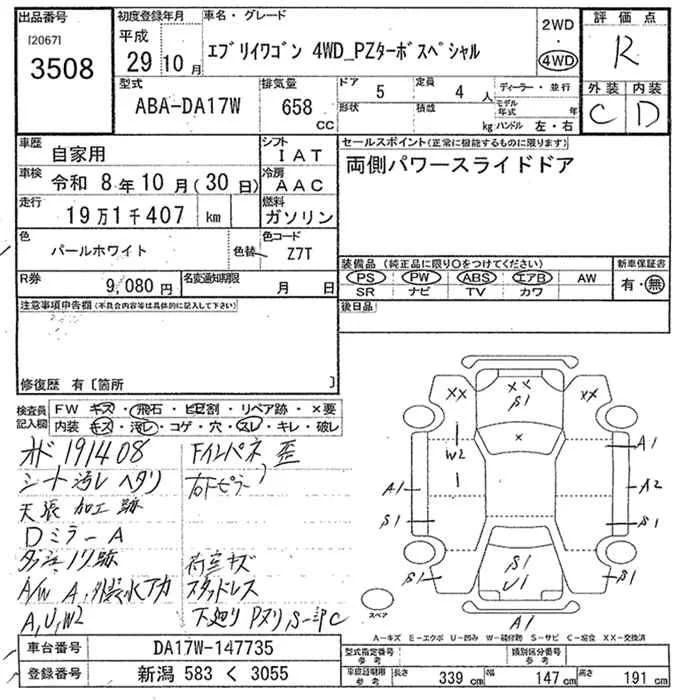 出品番号
[2067]
3508
初度登録年月
平成
29年10月
車名・グレード
エブリイワゴン 4WD_PZターボスペシャル
2WD
4WD
評価点
R
外装 内装
C D
型式
ABA-DA17W
排気量
658
cc
ドア 5
形状
定員 4人
積載
kg
ディーラー・並行
モデル年式 年
ハンドル 左・右
車歴 自家用
シフト IAT
車検 令和 8年10月(30日)
冷房 AAC
走行 19万1千407 km
燃料 ガソリン
色 パールホワイト
色替
色コード Z7T
R券 9,080円
名変通知期限 月 日
セールスポイント(正常に機能するものに限ります)
両側パワースライドドア
装備品(純正品に限り○をつけてください)
PS PW ABS エアB AW
SR ナビ TV カワ
新車保証書
有・無
後日品
注意事項申告欄(不具合内容等は具体的に記入して下さい)
修復歴 有[箇所 ]
検査員記入欄
FW キズ・飛石・ヒビ割・リペア跡・×要
内装 キズ・汚レ・コゲ・穴・スレ・キレ・破レ
オド 191408
シート汚レ ヘタリ
天張 加工跡
Dミラー A
ノリ跡
A/W A
A,U,W2
Fインパネ 歪
右Fピラー
荷室キズ
スタッドレス
下廻り Pヌリ,S
××
××
S1
××
×
W2
A1
A1
A2
S1
S1
S1
U1
S1
S1
A1
スペア
A-キズ E-エクボ U-凹ミ W-補修跡 S-サビ C-腐食 XX-交換済
車台番号 DA17W-147735
登録番号 新潟 583 く 3055
型式指定番号 参考
類別区分番号 参考
車庫証明用 参考
長さ 339 cm 幅 147 cm 高さ 191 cm